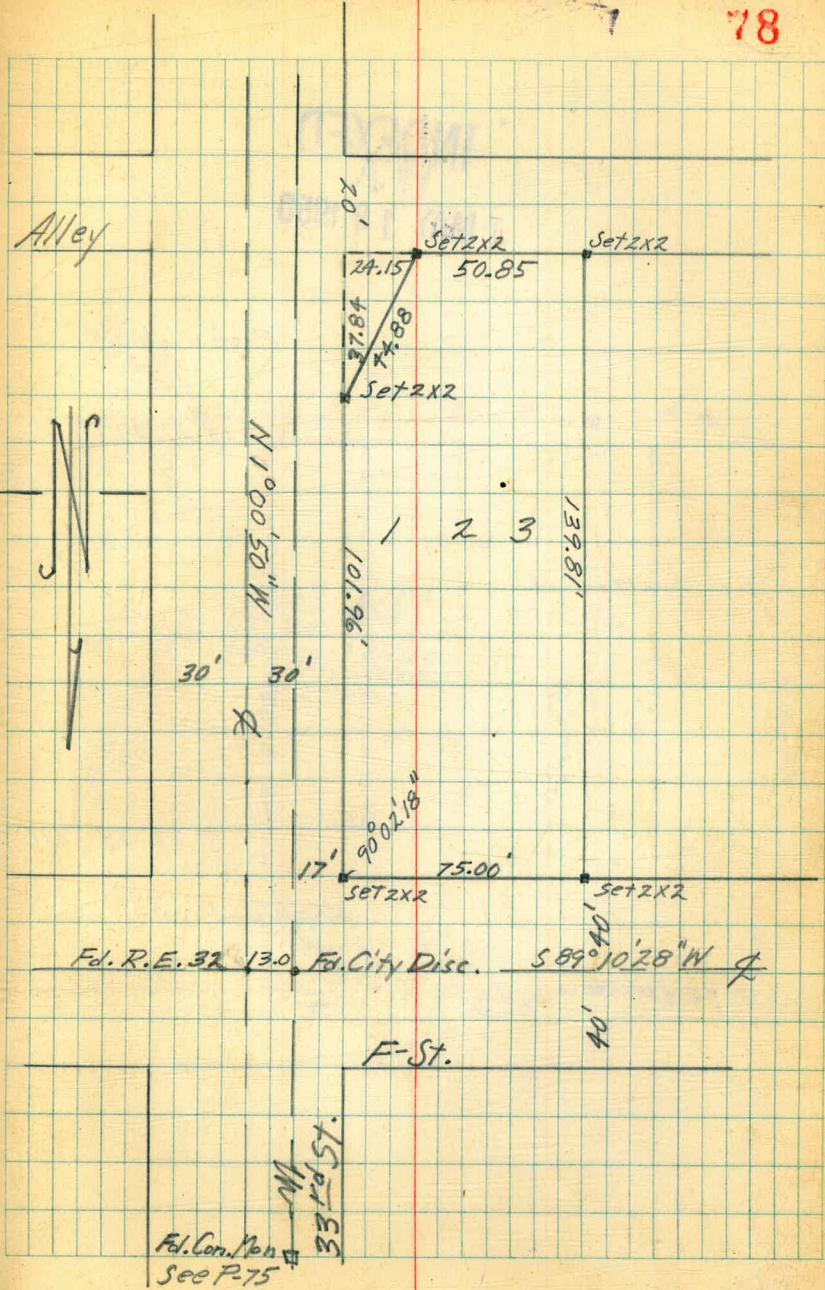 78
20'
Alley
Set 2x2
Set 2x2
24.15
50.85
37.84
44.88
Set 2x2
N
N 1°00'50" W
1 2 3
139.81'
101.96'
30' 30'
90°02'18"
17'
75.00'
Set 2x2
Set 2x2
40'
Fd. R.E. 32 13.0 Fd. City Disc. S 89°10'28" W
40'
F-St.
33rd St.
M
Fd. Con. Mon
See P-75